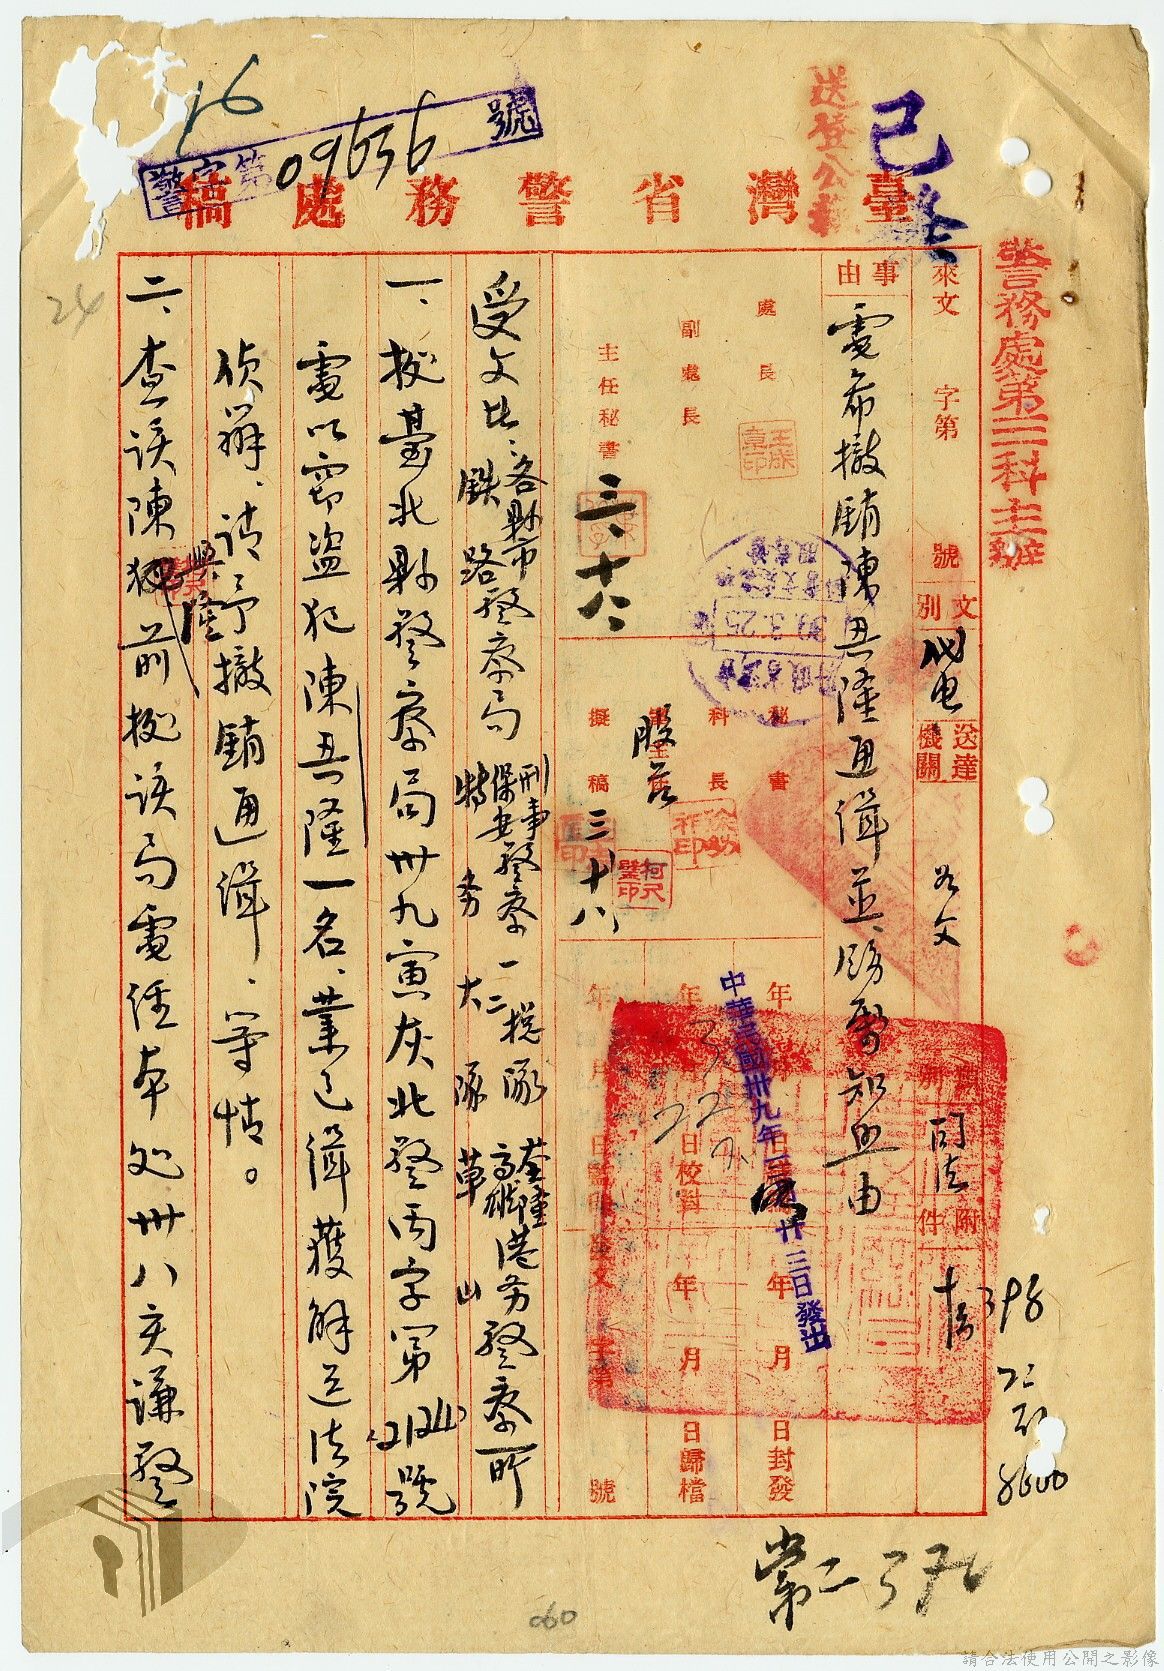 臺灣省警務處稿
警字第09636號
送登公報
已登
警務處第二科主辦
來文 字第 號
文別 代電
送達機關 各文
附件
事由 電希撤銷陳興隆通緝並飭屬知照由
處長
副處長
主任秘書
三、十六
秘書
科長
股長
擬稿
三、十八
39.3.25
中華民國卅九年三月廿三日發出
年 月 日封發
年 月 日校對
年 月 日歸檔
號
受文者：各縣市 鐵路警察局 刑事 保安警察一二總隊 特務大隊 基隆 高雄港務警察所 草山
一、據臺北縣警察局卅九寅灰北警丙字第號
電以竊盜犯陳興隆一名、業已緝獲解送法院
偵辦、請予撤銷通緝、等情。
二、查該陳興隆前據該局電經本處卅八亥謙警
24
060
請合法使用公開之影像